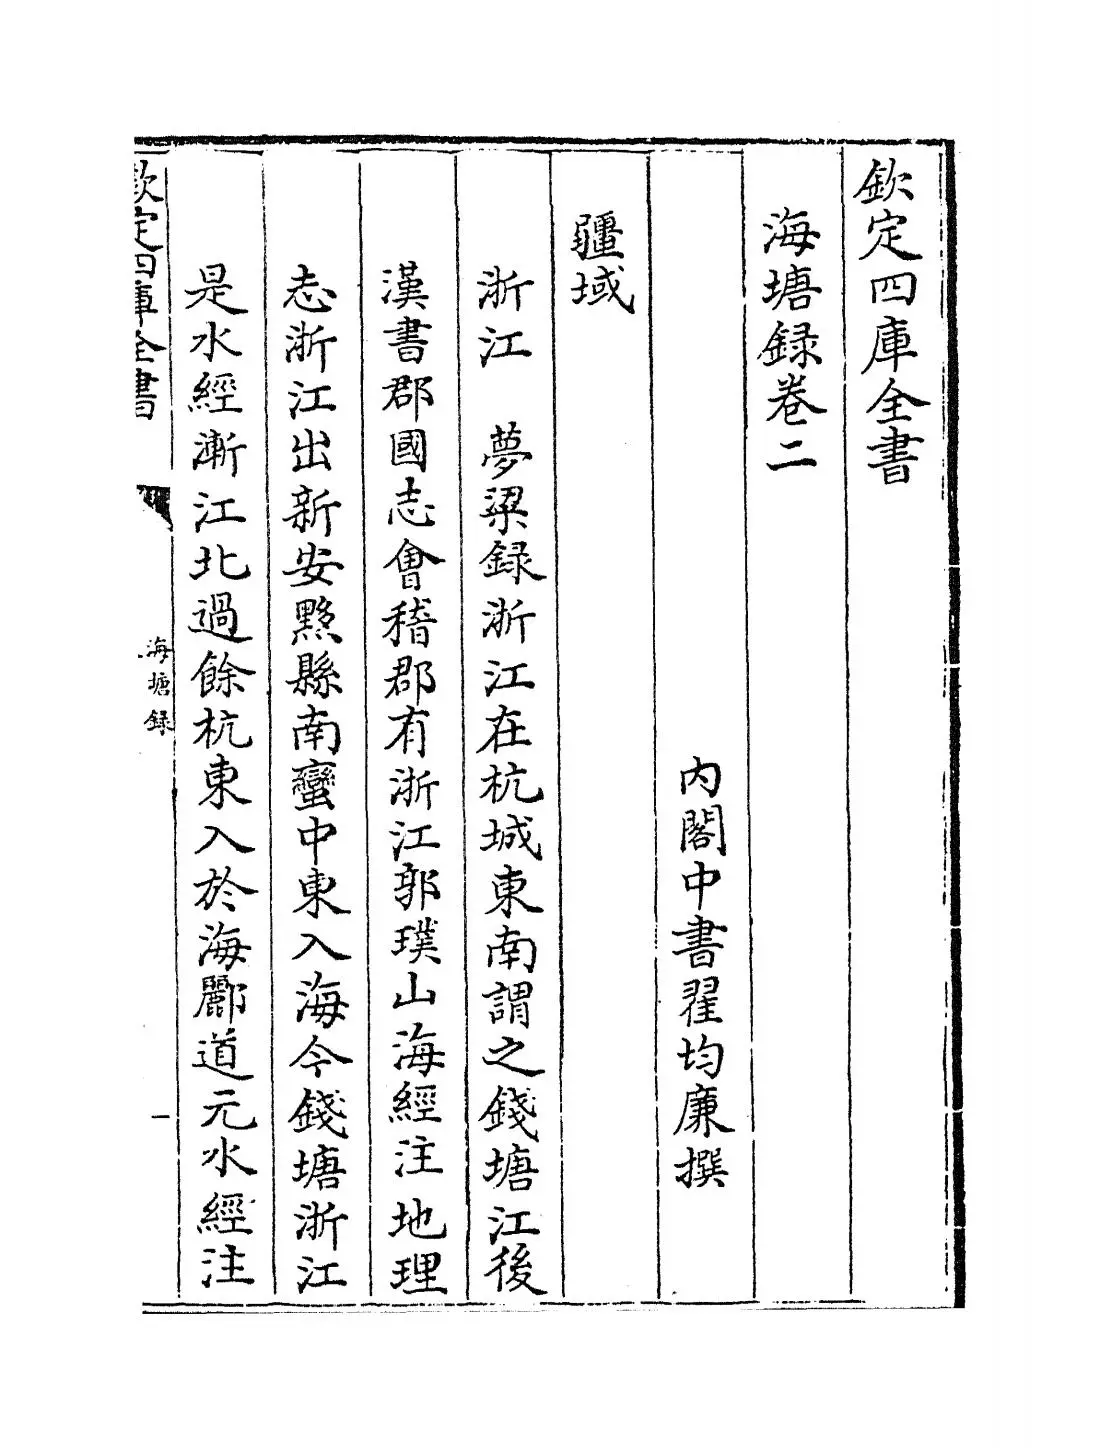 欽定四庫全書
海塘録卷二
內閣中書翟均廉撰
疆域
浙江　夢粱録浙江在杭城東南謂之錢塘江後
漢書郡國志會稽郡有浙江郭璞山海經注地理
志浙江出新安黟縣南蠻中東入海今錢塘浙江
是水經漸江北過餘杭東入於海酈道元水經注
欽定四庫全書
海塘録
一